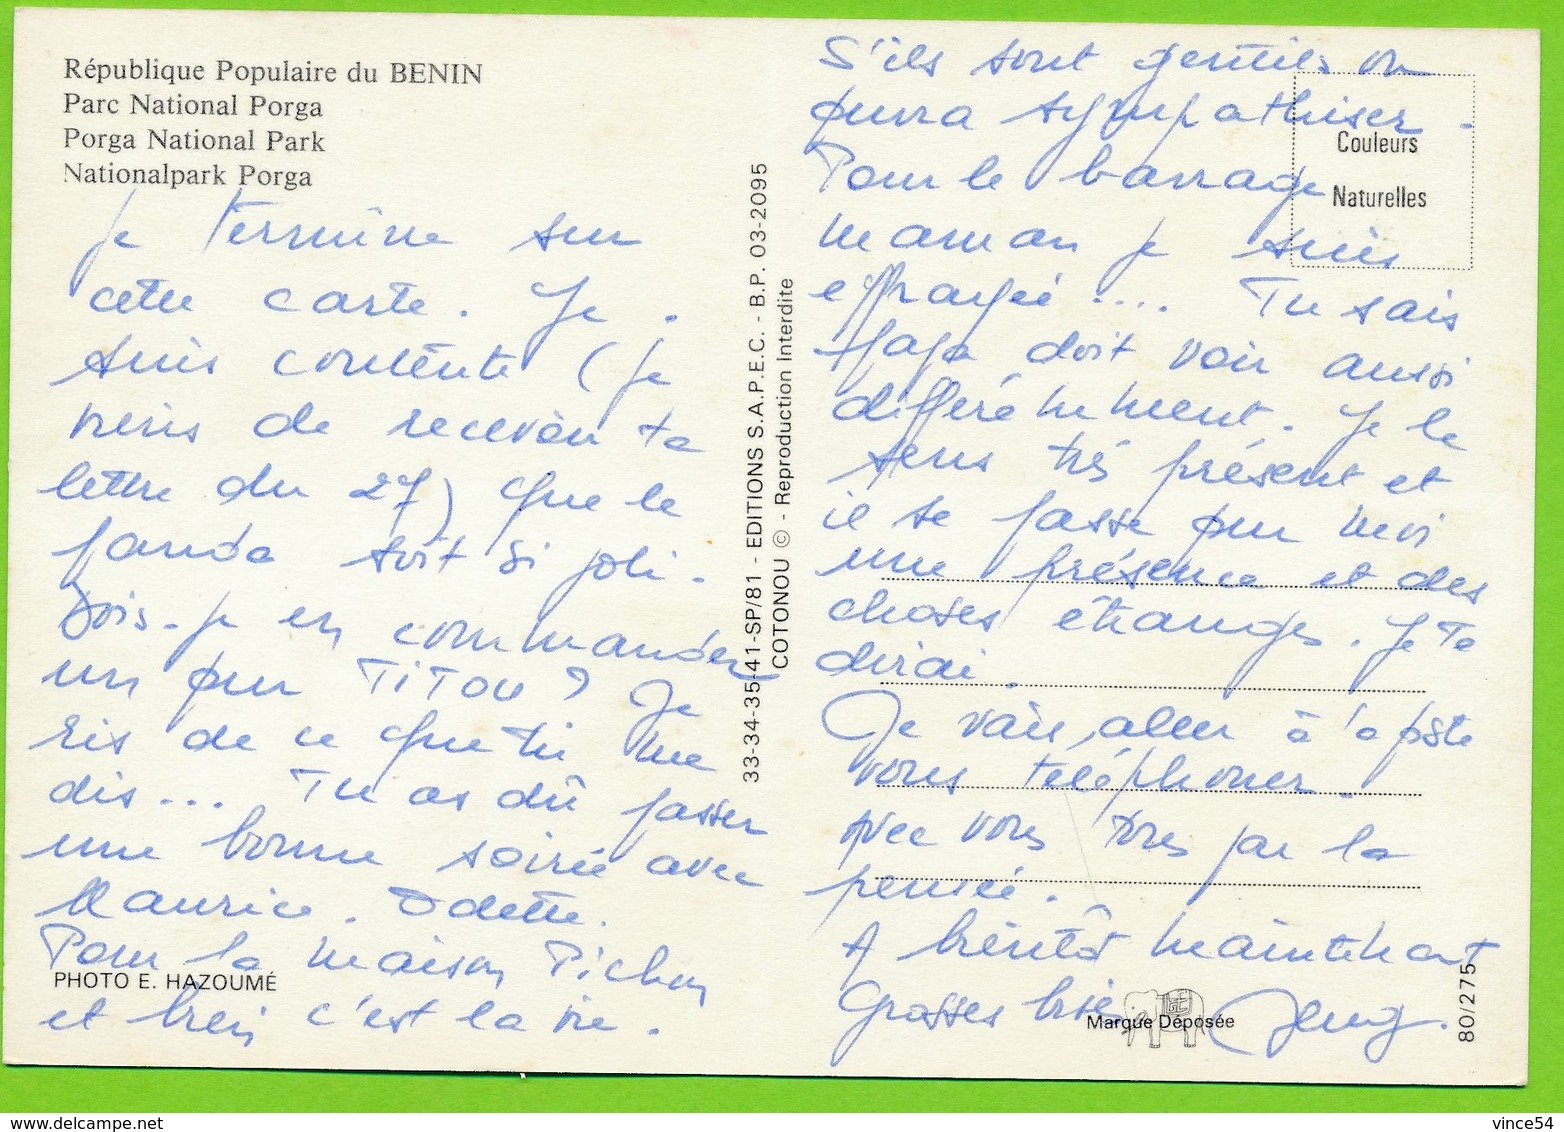 République Populaire du BENIN
Parc National Porga
Porga National Park
Nationalpark Porga
Je termine sur
cette carte. Je
suis contente (je
viens de recevoir ta
lettre du 27) que le
soit si joli.
Dois-je en commander
un pour TiTou ? Je
ris de ce que tu me
dis... Tu as dû passer
une bonne soirée avec
Maurice. Odette.
Pour la maison Pichon
et bien c'est la vie.
PHOTO E. HAZOUMÉ
33-34-35-41-SP/81 - EDITIONS S.A.P.E.C. - B.P. 03-2095
COTONOU © - Reproduction Interdite
S'ils sont gentils on
pourra sympathiser.
Pour le barrage
maman je suis
effrayée .... Tu sais
papa doit voir aussi
différemment. Je le
sens très présent et
il se passe pour moi
une présence et des
choses étranges. Je te
dirai.
Je vais aller à la poste
vous téléphoner.
Avec vous tous par la
pensée.
A bientôt maintenant
Grosses bises
Couleurs
Naturelles
Marque Déposée
80/275
vince54